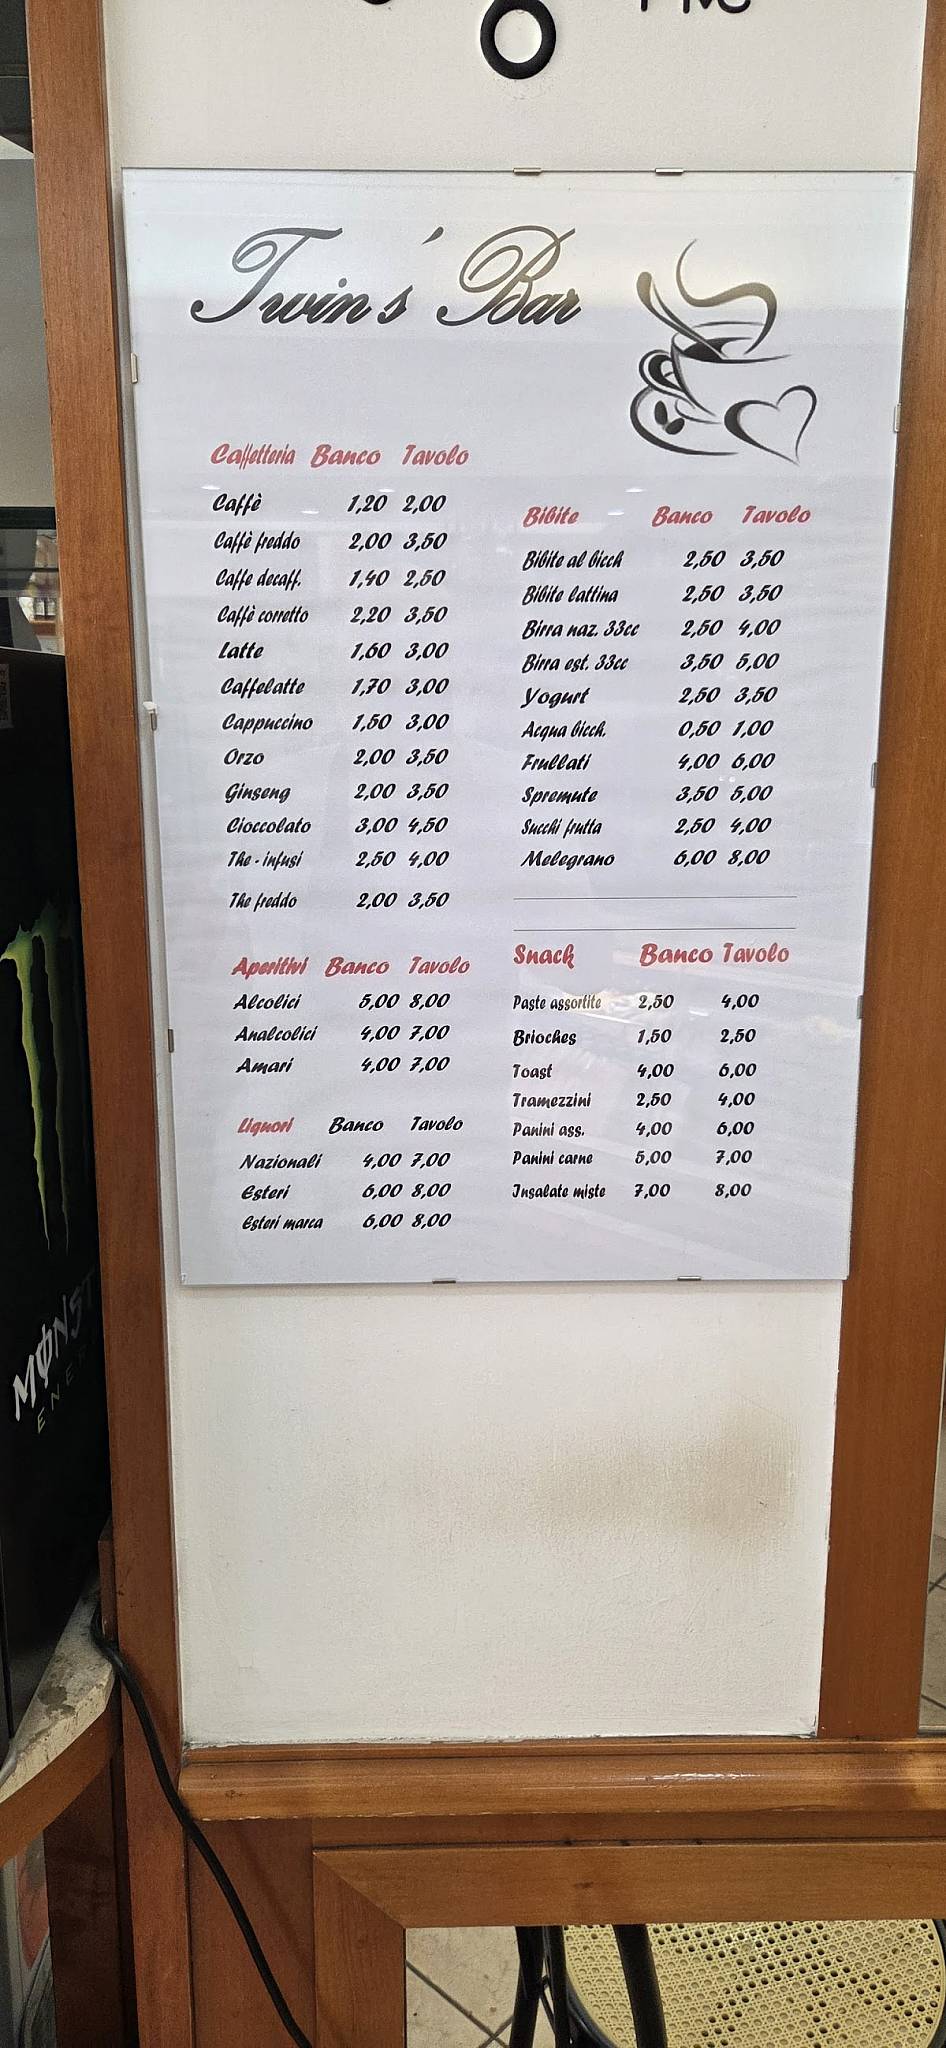 Twin's Bar
Caffetteria Banco Tavolo
Caffè 1,20 2,00
Caffè freddo 2,00 3,50
Caffe decaff. 1,40 2,50
Caffè corretto 2,20 3,50
Latte 1,60 3,00
Caffelatte 1,70 3,00
Cappuccino 1,50 3,00
Orzo 2,00 3,50
Ginseng 2,00 3,50
Cioccolato 3,00 4,50
The - infusi 2,50 4,00
The freddo 2,00 3,50
Aperitivi Banco Tavolo
Alcolici 5,00 8,00
Analcolici 4,00 7,00
Amari 4,00 7,00
Liquori Banco Tavolo
Nazionali 4,00 7,00
Esteri 6,00 8,00
Esteri marca 6,00 8,00
Bibite Banco Tavolo
Bibite al bicch 2,50 3,50
Bibite lattina 2,50 3,50
Birra naz. 33cc 2,50 4,00
Birra est. 33cc 3,50 5,00
Yogurt 2,50 3,50
Acqua bicch. 0,50 1,00
Frullati 4,00 6,00
Spremute 3,50 5,00
Succhi frutta 2,50 4,00
Melegrano 6,00 8,00
Snack Banco Tavolo
Paste assortite 2,50 4,00
Brioches 1,50 2,50
Toast 4,00 6,00
Tramezzini 2,50 4,00
Panini ass. 4,00 6,00
Panini carne 5,00 7,00
Insalate miste 7,00 8,00